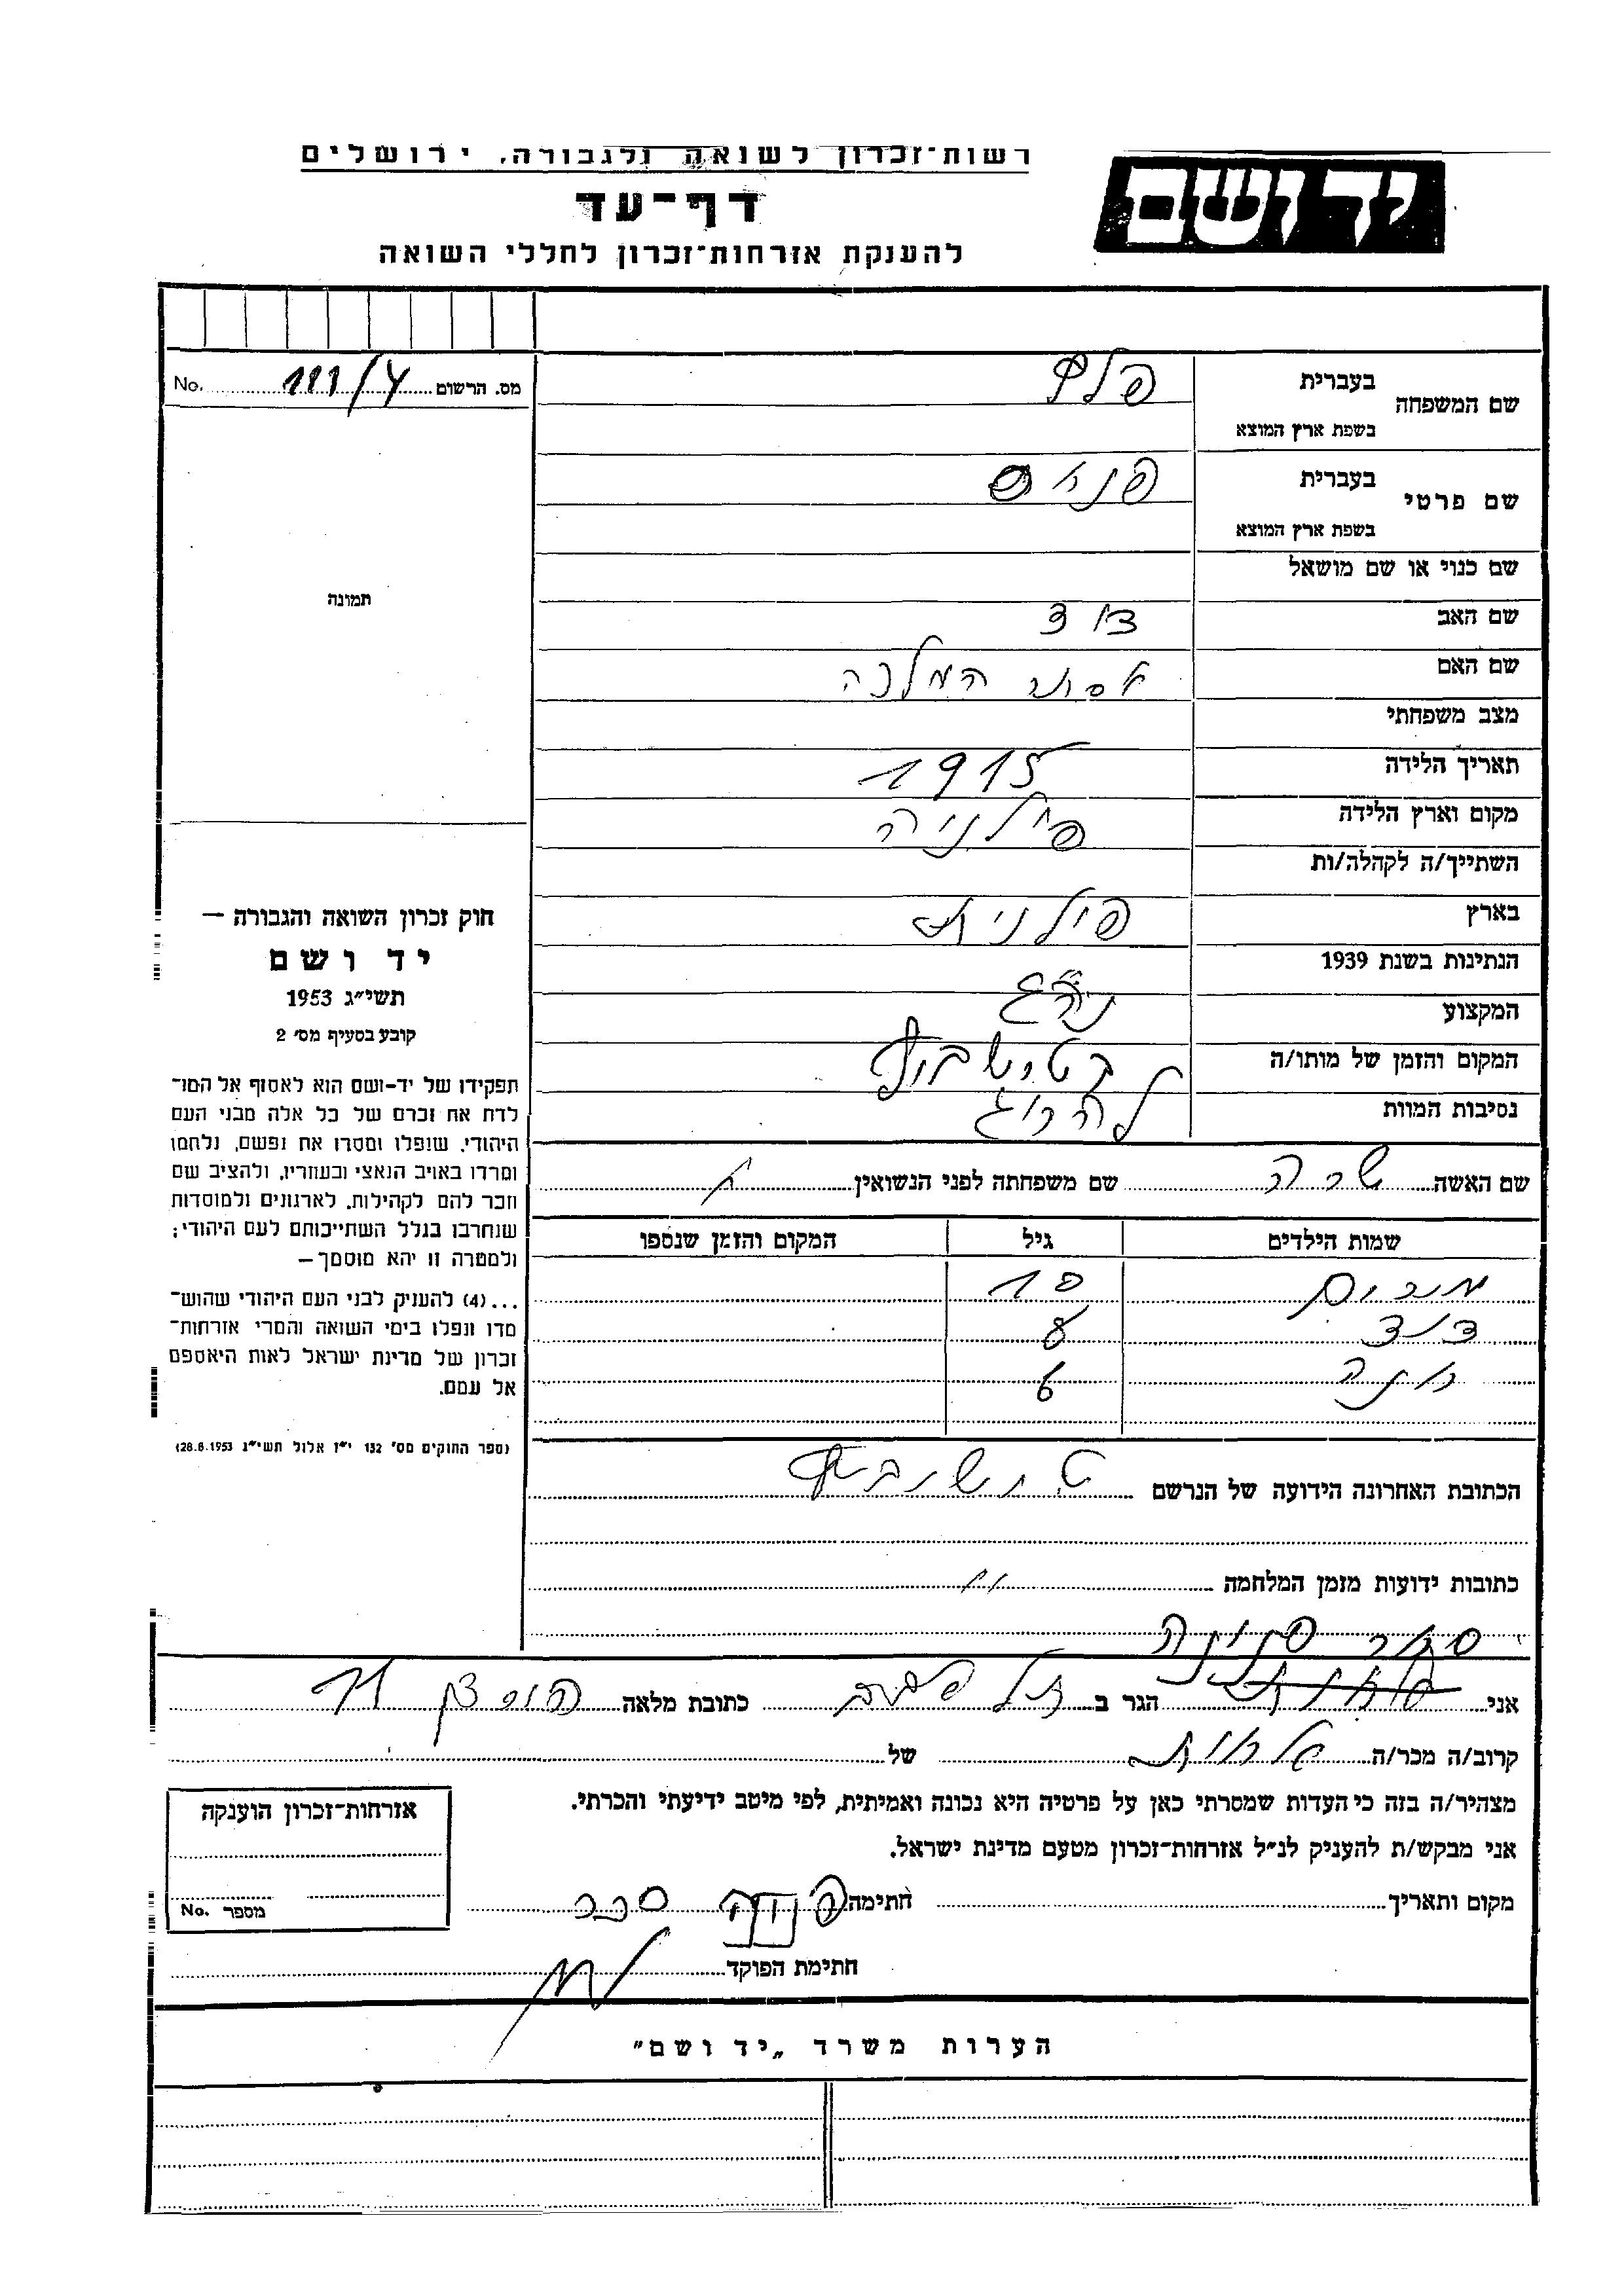 רשות־זכרון לשואה ולגבורה, ירושלים
יד ושם
דף־עד
להענקת אזרחות־זכרון לחללי השואה
מס. הרשום 111/4 No.
שם המשפחה
בעברית פלף
בשפת ארץ המוצא
שם פרטי
בעברית
בשפת ארץ המוצא
שם כנוי או שם מושאל
שם האב דוד
שם האם אסתר המלכה
מצב משפחתי
תאריך הלידה 1915
מקום וארץ הלידה פולניה
השתייך/ה לקהלה/ות
בארץ פולנית
הנתינות בשנת 1939
המקצוע
המקום והזמן של מותו/ה
נסיבות המוות
שם האשה שרה שם משפחתה לפני הנשואין
שמות הילדים גיל המקום והזמן שנספו
מרים 10
דוד 8
6
הכתובת האחרונה הידועה של הנרשם
כתובות ידועות מזמן המלחמה
תמונה
חוק זכרון השואה והגבורה –
יד ושם
תשי״ג 1953
קובע בסעיף מס׳ 2
תפקידו של יד-ושם הוא לאסוף אל המו־
לדת את זכרם של כל אלה מבני העם
היהודי, שנפלו ומסרו את נפשם, נלחמו
ומרדו באויב הנאצי ובעוזריו, ולהציב שם
וזכר להם לקהילות, לארגונים ולמוסדות
שנחרבו בגלל השתייכותם לעם היהודי;
ולמטרה זו יהא מוסמך–
...(4) להענק לבני העם היהודי שהוש־
מדו ונפלו בימי השואה והמרי אזרחות־
זכרון של מדינת ישראל לאות היאספם
אל עמם.
(ספר החוקים מס׳ 132 י״ז אלול תשי״ג 28.8.1953)
אני הגר ב כתובת מלאה 11
קרוב/ה מכר/ה של
מצהיר/ה בזה כי העדות שמסרתי כאן על פרטיה היא נכונה ואמיתית, לפי מיטב ידיעתי והכרתי.
אני מבקש/ת להעניק לנ״ל אזרחות־זכרון מטעם מדינת ישראל.
מקום ותאריך חתימה
חתימת הפוקד
אזרחות־זכרון הוענקה
מספר No.
הערות משרד „יד ושם״